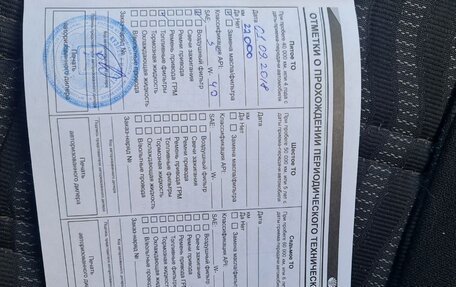 ОТМЕТКИ О ПРОХОЖДЕНИИ ПЕРИОДИЧЕСКОГО ТЕХНИЧЕСК
Пятое ТО
При пробеге 40 000 км, или 4 года с
даты передачи автомобиля
Дата 01.09.2018
км 22000
Да Нет
Замена масла/фильтра
Классификация API:
SAE 5 W- 40
Воздушный фильтр
Свечи зажигания
Ремни привода
Ремень привода ГРМ
Топливные фильтры
Тормозная жидкость
Охлаждающая жидкость
В/вольтные провода
Заказ-наряд №
Печать
авторизованного дилера
Шестое ТО
При пробеге 50 000 км, или 5 лет с
даты передачи автомобиля
Дата
км
Да Нет
Замена масла/фильтра
Классификация API:
SAE W-
Воздушный фильтр
Свечи зажигания
Ремни привода
Ремень привода ГРМ
Топливные фильтры
Тормозная жидкость
Охлаждающая жидкость
В/вольтные провода
Заказ-наряд №
Печать
авторизованного дилера
Седьмое ТО
При пробеге 60 000 км, или 6
даты передачи автомоб
Дата
км
Да Нет
Замена масла/фил
Классификация API:
SAE W-
Воздушный фильтр
Свечи зажигания
Ремни привода
Ремень привода ГРМ
Топливные фильтры
Тормозная жидкость
Охлаждающая жидкость
В/вольтные провода
Заказ-наряд №
Печать
авторизованного дилера